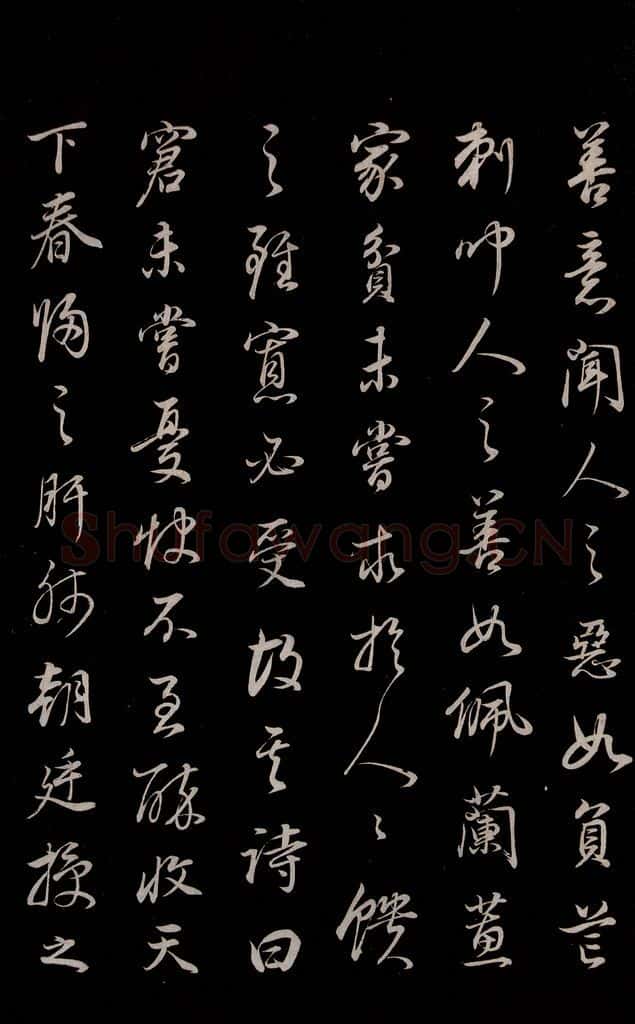 善意聞人之惡如負芒
刺人之善如佩蘭蕙
家貧未嘗求於人々饋
之雖寡必受故其詩曰
窘未嘗憂飲不至醉收天
下春歸之肝肺朝廷授之
Shufawang.CN